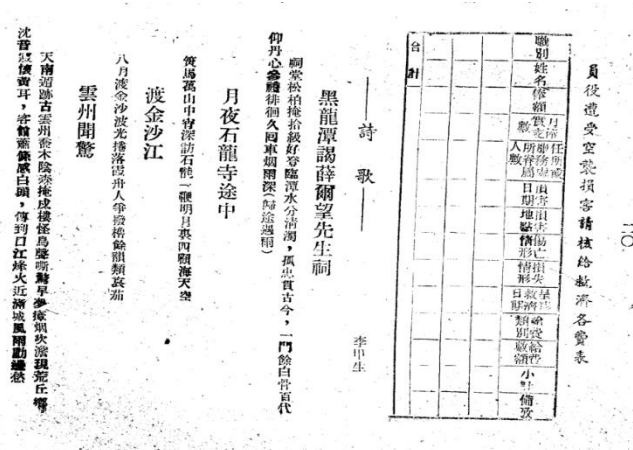 二〇
員役遭受空襲損害請核給救濟各費表
職別
姓名
俸額
任所或服務處所眷屬人數
損害日期
損害地點
傷亡情形
損失情形
呈請救濟日期
給費類別
給費數額
小計
備攷
合計
——詩歌——
黑龍潭謁薛爾望先生祠
李甲生
祠堂松柏掩拾級好登臨潭水分清濁，孤忠貫古今，一門餘白骨百代
仰丹心參禮徘徊久回車烟雨深(歸途遇雨)
月夜石龍寺途中
策馬萬山中 深訪石龍一鞭明月裏四顧海天空
渡金沙江
八月渡金沙波光捲落霞舟人爭撥槳餘韻類哀笳
雲州聞驚
天南 跡古雲州喬木陰森掩戍樓怪鳥聲嘶驚早夢瘴烟吹澹現荒丘鄉
沈音 懷黃耳，客館蕭條感白頭，傳到口江烽火近滿城風雨動邊愁